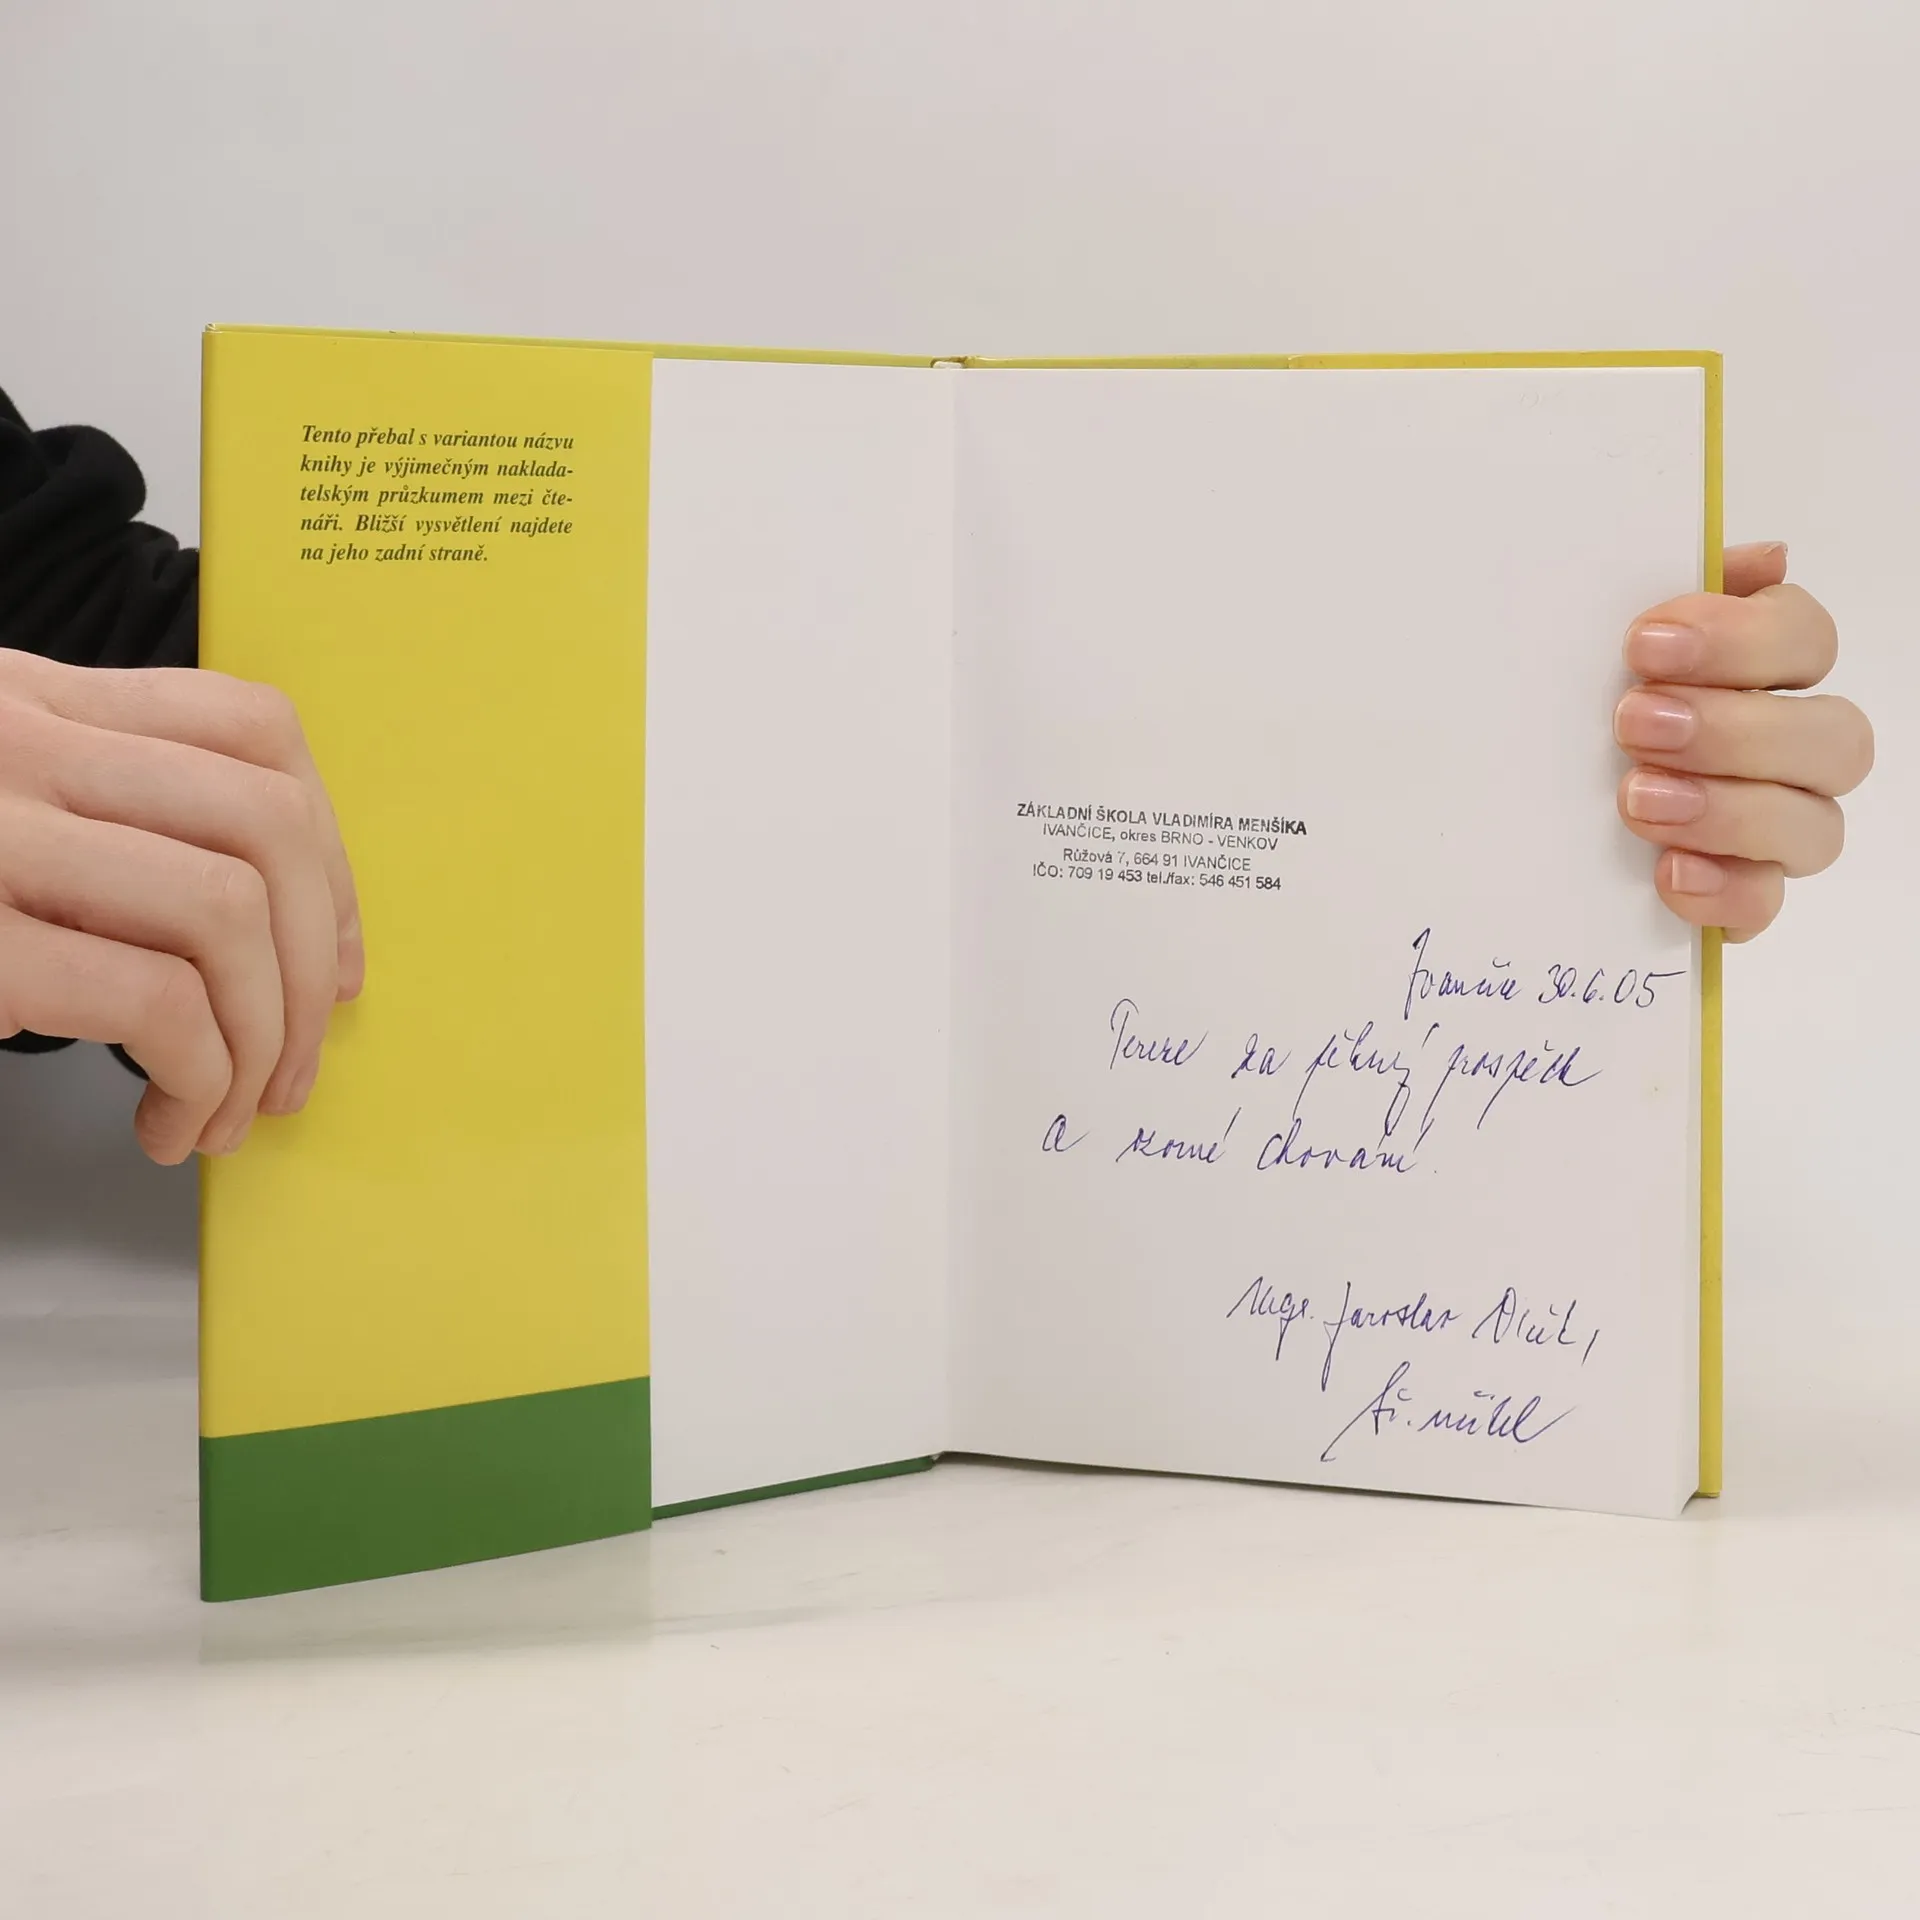 Tento přebal s variantou názvu
knihy je výjimečným naklada-
telským průzkumem mezi čte-
náři. Bližší vysvětlení najdete
na jeho zadní straně.
ZÁKLADNÍ ŠKOLA VLADIMÍRA MENŠÍKA
IVANČICE, okres BRNO - VENKOV
Růžová 7, 664 91 IVANČICE
IČO: 709 19 453 tel./fax: 546 451 584
Ivančice 30.6.05
Tereze za pěkný prospěch
a vzorné chování.
Mgr. Jaroslav
tř. učitel